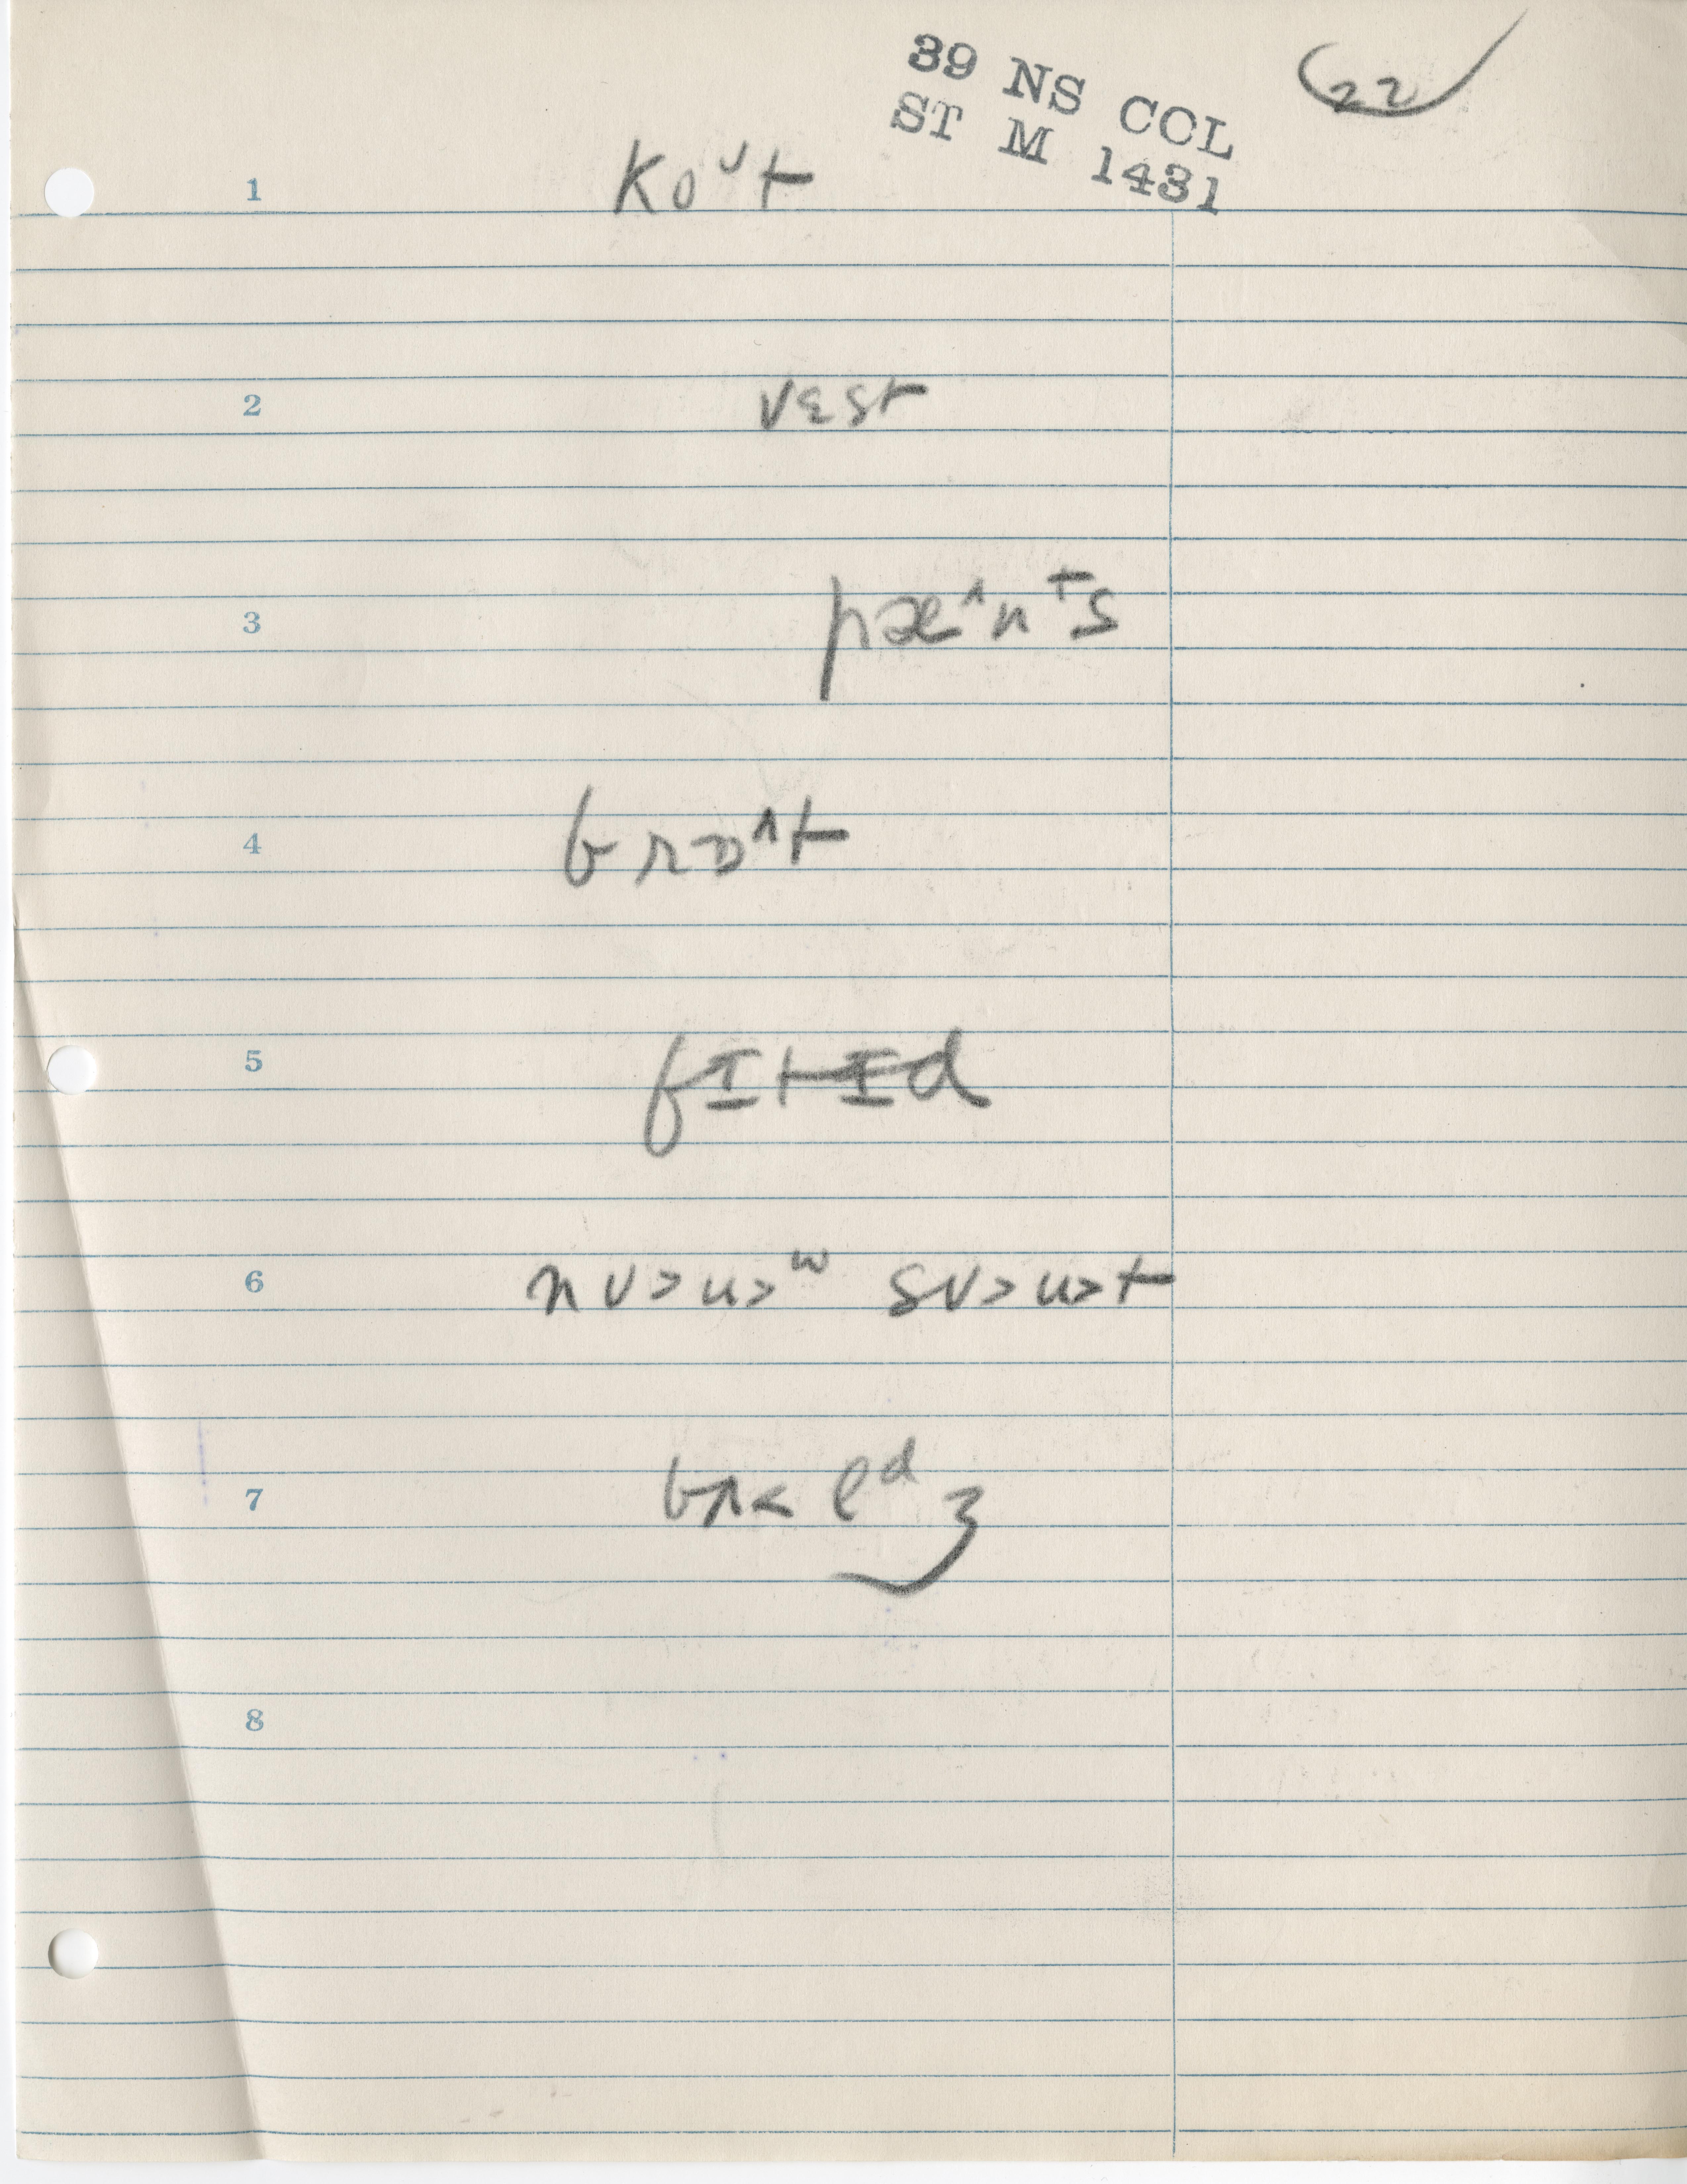 39 NS COL
ST M 1431
22
1 koᶷt
2 vɛst
3 pæ^nᵗs
4 brɒ^t
5 fɪtɨd
6 nʊ>u>ʷ sʊ>u>t
7 bʌ<lᵈʒ
8